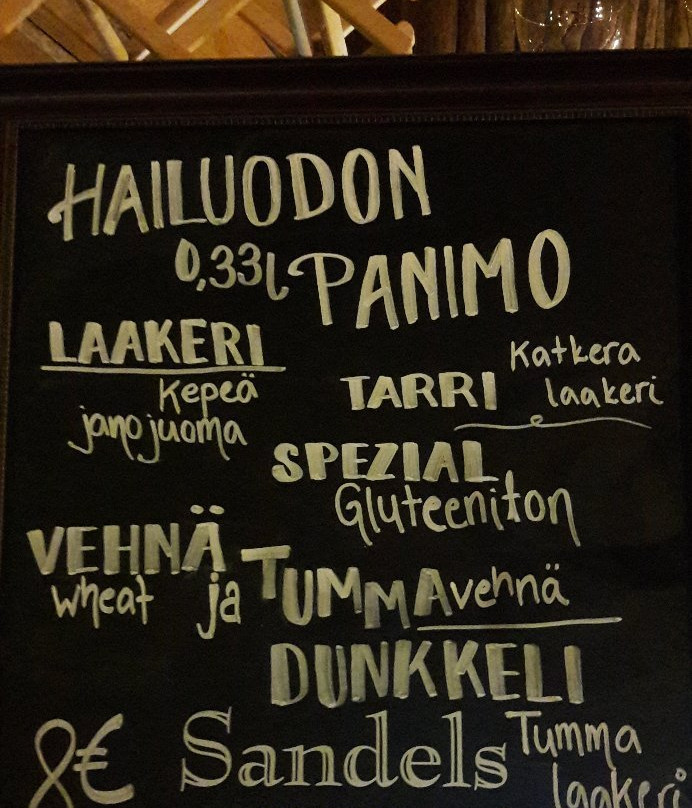 HAILUODON
0,33l PANIMO
LAAKERI
Kepeä
janojuoma
TARRI Katkera
laakeri
SPEZIAL
Gluteeniton
VEHNÄ
wheat ja TUMMAvehnä
DUNKKELI
Tumma
laakeri
8€ Sandels